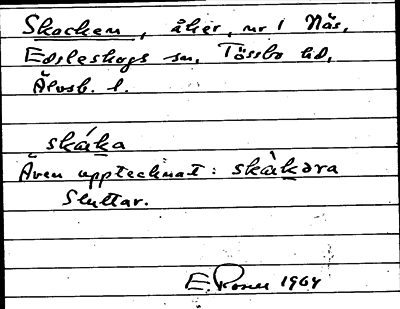 Skacken, åker, nr 1 Näs,
Edsleskogs sn, Tössbo hd,
Älvsb. l.
skáka
Även upptecknat: skàkəra
Sluttar.
E. Rosell 1964